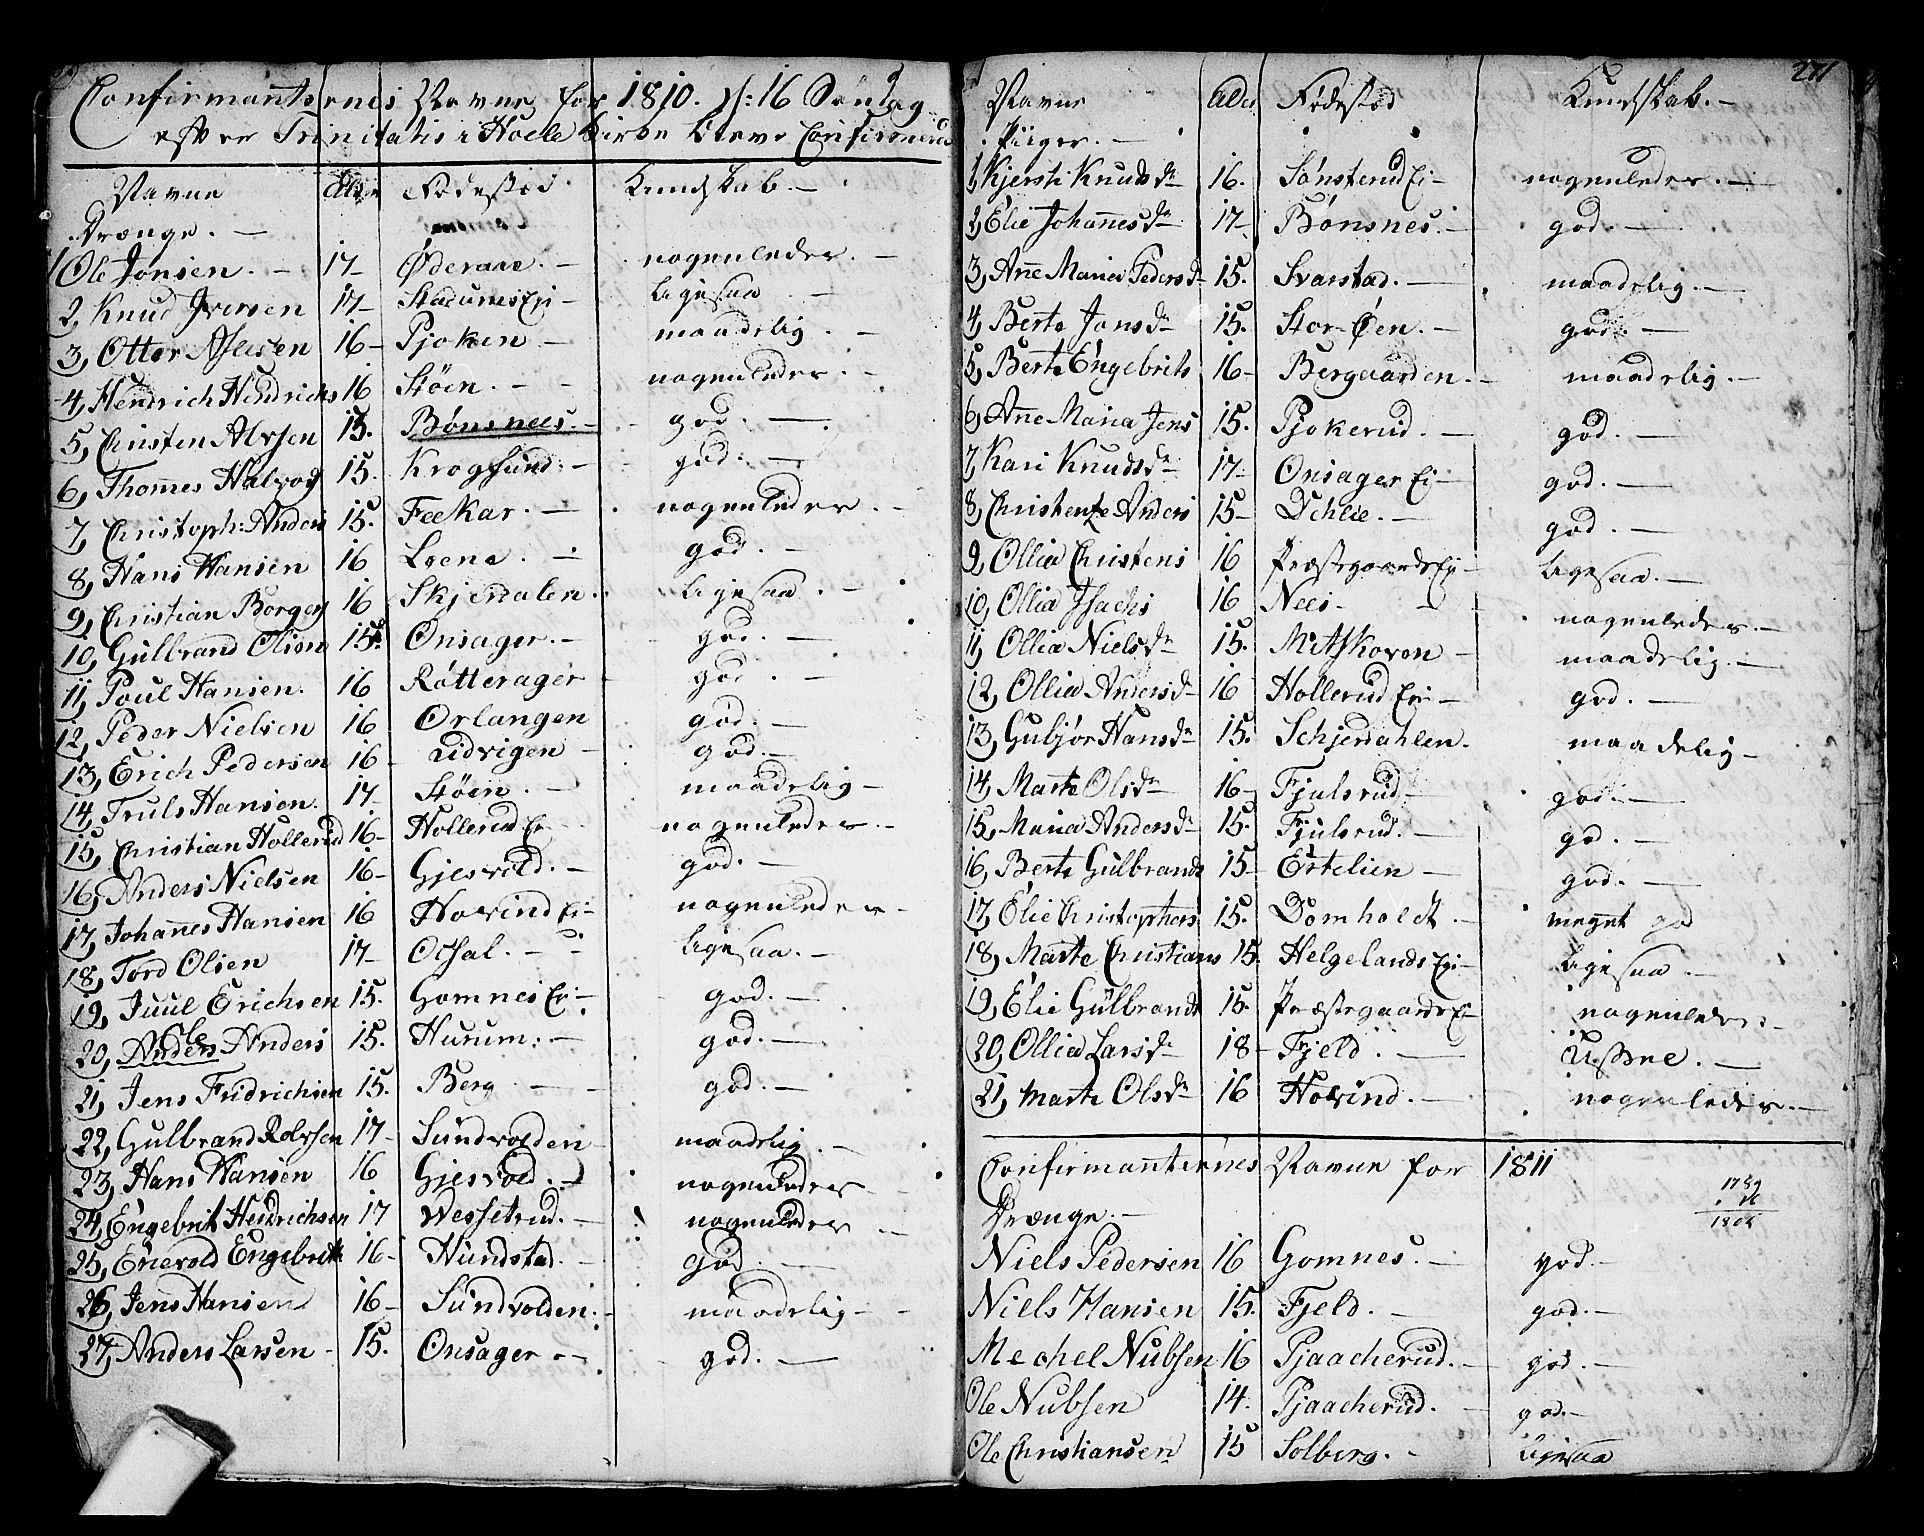 Confirmanternes Navne for 1810. d: 16 Søndag
efter Trinitatis i Hole Kirke bleve Confirmered
Navne Alder Fødestæd. Kundskab. —
Drænge. —
1 Ole Jonsen. — 17 — Øderaae. — nogenledes. —
2, Knud Iversen 17 — Stadumes Ei — ligesaa —
3, Otter Aslesen 16 — Pjoken — maadelig. —
4, Hendrich Hendrichs 16 Støen. — nogenledes. —
5, Christen Alvsen 15. Bønsnees. — god. —
6, Thommes Halvors 15. Krogsund. — god. —
7, Christoph: Anders 15. Feekar. — nogenledes. —
8, Hans Hansen 16 Loena. — god. —
9, Christian Borges 16 Skjerdalen. ligesaa. —
10, Gulbrand Olsen 15. Onsager. — god. —
11, Poul Hansen. 16 Røtterager god. —
12, Peder Nielsen 16 Orlangen god. —
13, Erich Pedersen 16 — Lidvigen — god. —
14, Truls Hansen. 17 — Støen. — maadelig —
15, Christian Hollerud 16 — Hollerud Ei nogenledes. —
16, Anders Nielsen 16 — Gjesvold. — god. —
17, Johannes Hansen 16 Hovind Ei — nogenledes —
18, Tord Olsen 17 — Opsal. — ligesaa. —
19, Juul Erichsen 15. Gomnes Ei — god. —
Ole
20, Anders Anders 15. Hurum: — god. —
21, Jens Fridrichsen 15. Berg — god. —
22, Gulbrand Rolvsen 17 — Sundvolden maadelig. —
23, Hans Hansen 16 Gjesvold. — nogenledes —
24, Engebrit Hendrichsen 17 Wessetrud. — nogenledes —
25, Enevold Engebrits 16 — Hundstad. — god. —
26, Jens Hansen 16 — Sundvolden. — maadelig —
27, Anders Larsen — 15. Onsager — god. —
271
Navne Alder Fødestæd Kundskab. —
Piiger. —
1, Kjersti Knudsdr 16. Sønsterud Ei — nogenledes. —
2, Elie Johannesdr 17 — Bønsnes. — god. —
3, Anne Maria Pedersdr 15. Svarstad. — maadelig. —
4, Berte Jonsdr 15. Stor-Øen. — god. —
5, Berte Engebrits 16 — Bergaarden. — maadelig. —
6, Anne Maria Jens 15. Pjokerud. — god. —
7, Kari Knudsdr 17 — Onsager Ei — god. —
8, Christentze Anders 15 — Dehlie. — god. —
9, Ollia Christens 16 Præstegaards Ei — ligesaa. —
10, Ollia Isachs 16 Nees — nogenledes. —
11, Ollia Nielsdr 15. Mitskoven — maadelig. —
12, Ollia Andersdr 16 Hollerud Ei — god. —
13, Gubjør Hansdr 15. Schjerdahlen. maadelig —
14, Marte Olsdr 16 — Fjulsrud — god. —
15, Maria Andersdr 15. Fjulsrud. — god. —
16, Berte Gulbrands 15 — Ertelien — god. —
17, Elie Christophers 15. Domholdt. — meget god
18, Marte Christians 15. Helgelands Ei — ligesaa. —
19, Elie Gulbrands 15. Præstegaards Ei — nogenledes —
20, Ollia Larsdr 18 — Fjeld. —
21, Marte Olsdr 16 Hovind. — nogenledes. —
Confirmanternes Navne for 1811
1789
1804
Drænge. —
Niels Pedersen 16 Gomnes. — god. —
Niels Hansen 15. Fjeld. — god. —
Mechel Nubsen 16 Pjaacherud. — god. —
Ole Nubsen 14. Pjaacherud. — god. —
Ole Christiansen 15 Solberg. — ligesaa